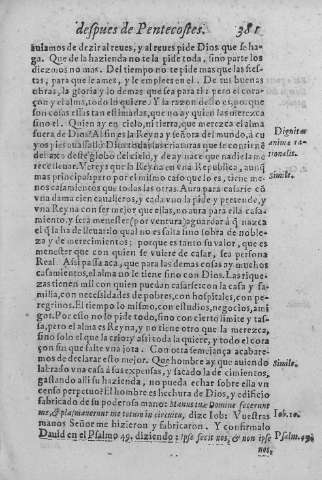 despues de Pentecostes. 381
auiamos de dezir al reues, y al reues pide Dios que se ha-
ga. Que de la hazienda no te la pide toda, sino parte los
diezmos no mas. Del tiempo no te pide mas que las fies-
tas, para que le ames, y le emplees en el. De tus buenas
obras, la gloria y lo demas que sea para ti: pero el cora-
çon y el alma, todo lo quiere. Y la razon desto es, porque
son cosas ellas tan estimadas, que no ay quien las merezca
sino el. Quien ay en cielo, ni tierra, que merezca el alma
fuera de Dios? Al fin es la Reyna y señora del mundo, a cu
yos pies auassalló Dios todas las criaturas que se contienē
debaxo deste globo del cielo, y de ay nace que nadie la me
rece lleuar. Vereys que la Reyna en vna Republica, aunq̃
mas principal, pero por el mismo caso que lo es, tiene me-
nos casamientos que todas las otras. Aura para casarse cō
vna dama cien caualleros, y cada vno la pide y pretende, y
vna Reyna con ser mejor que ellas, no aura para ella casa-
miento, y será menester (por ventura) aguardar á q̃ nazca
el q̃ la ha de lleuar: lo qual no es falta sino sobra de noble-
za y de merecimientos; porque es tanto su valor, que es
menester que con quien se vuiere de casar, sea persona
Real. Assi passa acá, que para las demas cosas ay muchos
casamientos, el alma no le tiene sino con Dios. Las rique-
zas tienen mil con quien puedan casarse: con la casa y fa-
milia, con necessidades de pobres, con hospitales, con pe-
regrinos. El tiempo lo mismo, con estudios, negocios, ami
gos. Por esso no lo pide todo, sino con cierto limite y tas-
sa, pero el alma es Reyna, y no tiene otro que la merezca,
sino solo el que la crio: y assi toda la quiere, y todo el cora
çon sin que falte vna jota. Con otra semejança acabare-
mos de declarar esto mejor. Que hombre ay que auiendo
labrado vna casa á sus expensas, y sacado la de cimientos,
gastando alli su hazienda, no pueda echar sobre ella vn
censo perpetuo? El hombre es hechura de Dios, y edificio
fabricado de su poderosa mano: Manus tuæ Domine fecerunt
me, & plasmauerunt me totum in circuitu, dize Iob: Vuestras
manos Señor me hizieron y fabricaron. Y confirmalo
Dauid en el Psalmo 49. diziendo: Ipse fecit nos, & non ipse
nos,
Dignitas
animæ ra-
tionalis.
Simile.
Simile.
Iob. 10.
Psalm. 49.